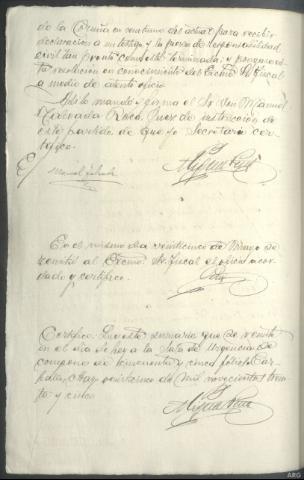 de la Coruña en veintiuno del actual para recibir
declaración a un testigo y la pieza de responsabilidad
civil tan pronto como esté terminada; y póngase es-
ta resolución en conocimiento del Excmo. Sr. Fiscal
a medio de atento oficio.
Así lo mandó y firma el Sr. Don Manuel
Taboada Roca, Juez de instrucción de
este partido de que yo Secretario cer-
tifico.
Manuel Taboada
En el mismo día veinticinco de Mayo se
remitió al Excmo. Sr. Fiscal el oficio acor-
dado y certifico.
Certifico: Que este sumario que se remite
en el día de hoy a la Sala de Urgencia se
compone de cincuenta y cinco folios.
Mayo veintiseis de mil novecientos trein-
ta y cinco.
ARG